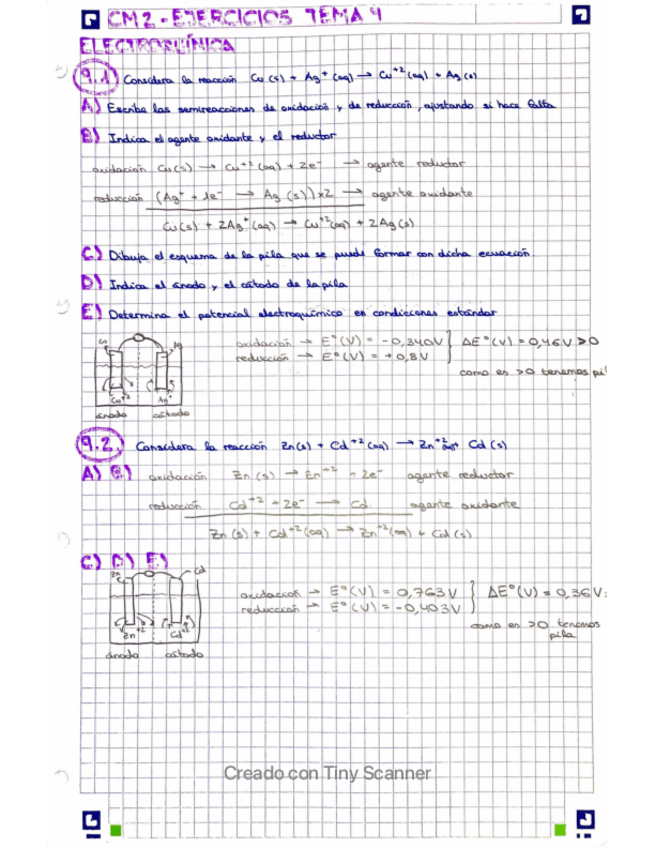 CM2 - EJERCICIOS TEMA 4
ELECTROQUÍMICA
9.1) Considera la reacción Cu (s) + Ag⁺ (aq) → Cu⁺² (aq) + Ag (s)
A) Escribe las semireacciones de oxidación y de reducción, ajustando si hace falta
B) Indica el agente oxidante y el reductor
oxidación Cu(s) → Cu⁺² (aq) + 2e⁻ → agente reductor
reducción (Ag⁺ + 1e⁻ → Ag (s)) x2 → agente oxidante
Cu(s) + 2Ag⁺ (aq) → Cu⁺² (aq) + 2Ag (s)
C) Dibuja el esquema de la pila que se puede formar con dicha ecuación.
D) Indica el ánodo y el cátodo de la pila
E) Determina el potencial electroquímico en condiciones estándar
Cu Ag
oxidación → E°(V) = -0,340V } ΔE°(V) = 0,46V > 0
reducción → E°(V) = +0,8V
como es >0 tenemos pi
Cu⁺² Ag⁺
ánodo cátodo
9.2.) Considera la reacción Zn(s) + Cd⁺² (aq) → Zn⁺² (aq) + Cd (s)
A) B) oxidación Zn (s) → Zn⁺² + 2e⁻ agente reductor
reducción Cd⁺² + 2e⁻ → Cd agente oxidante
Zn (s) + Cd⁺² (aq) → Zn⁺² (aq) + Cd (s)
C) D) E)
Zn Cd
oxidación → E°(V) = 0,763V } ΔE°(V) = 0,36V
reducción → E°(V) = -0,403V
como es >0 tenemos
pila
Zn⁺² Cd⁺²
ánodo cátodo
Creado con Tiny Scanner